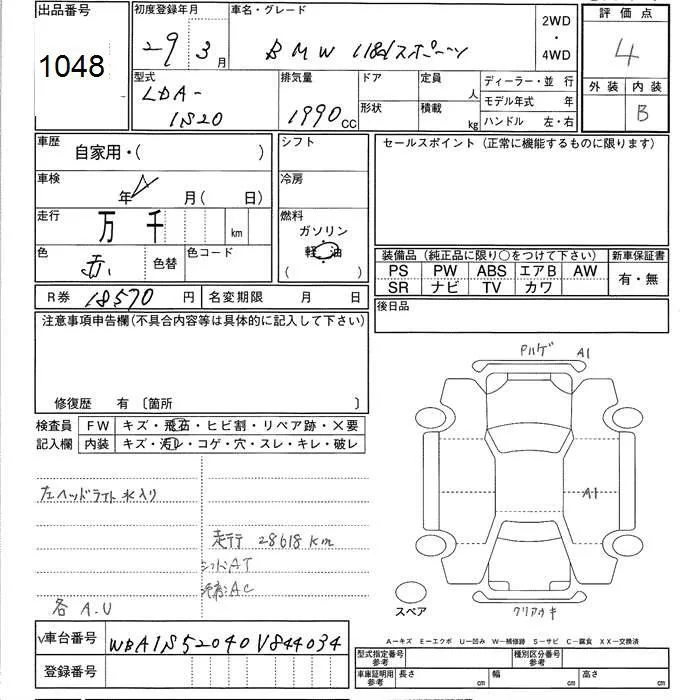 出品番号
1048
初度登録年月
29 3月
車名・グレード
BMW 118dスポーツ
2WD
・
4WD
評価点
4
外装 内装
B
型式
LDA-
1S20
排気量
1990CC
ドア
形状
定員
人
積載
kg
ディーラー・並行
モデル年式 年
ハンドル 左・右
車歴
自家用・( )
シフト
セールスポイント (正常に機能するものに限ります)
車検
年 月( 日)
冷房
走行
万 千 km
燃料
ガソリン
軽油
( )
色
赤
色替
色コード
装備品 (純正品に限り○をつけて下さい)
新車保証書
PS PW ABS エアB AW
SR ナビ TV カワ
有・無
R券 18570 円
名変期限 月 日
後日品
注意事項申告欄(不具合内容等は具体的に記入して下さい)
修復歴 有 〔箇所 〕
検査員
記入欄
FW キズ・飛石・ヒビ割・リペア跡・×要
内装 キズ・汚レ・コゲ・穴・スレ・キレ・破レ
Pハゲ A1
A1
左ヘッドライト水入り
走行 28618 km
シフト:AT
冷房:AC
各 A.U
スペア
クリアハキ
A－キズ E－エクボ U－凹み W－補修跡 S－サビ C－腐食 XX－交換済
車台番号 WBA1S52040V844034
登録番号
型式指定番号
参考
種別区分番号
参考
車庫証明用
参考
長さ cm
幅 cm
高さ cm